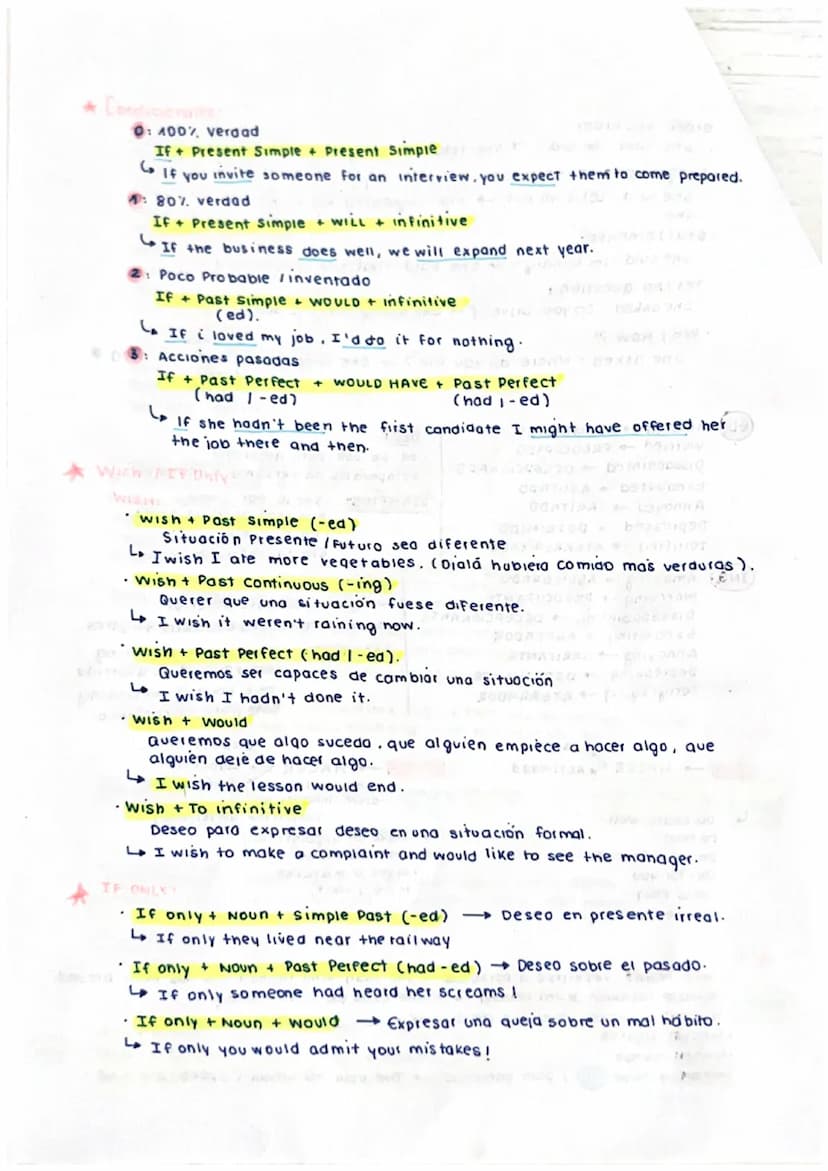 ★ Condicionales:
0: 100% verdad
If + Present Simple + Present Simple
↳ If you invite someone for an interview, you expect them to come prepared.
1: 80% verdad
If + Present Simple + WILL + infinitive
↳ If the business does well, we will expand next year.
2: Poco Probable / inventado
If + Past Simple + WOULD + infinitive
(ed).
↳ If i loved my job, I'd do it for nothing.
3: Acciones pasadas
If + Past Perfect + WOULD HAVE + Past Perfect
(had / -ed) (had / -ed)
↳ If she hadn't been the first candidate I might have offered her
the job there and then.
★ Wish / If Only
WISH:
· Wish + Past Simple (-ed)
Situación Presente / Futuro sea diferente
↳ I wish I ate more vegetables. (Ojalá hubiera comido más verduras).
· Wish + Past Continuous (-ing)
Querer que una situación fuese diferente.
↳ I wish it weren't raining now.
· Wish + Past Perfect (had / -ed).
Queremos ser capaces de cambiar una situación
↳ I wish I hadn't done it.
· Wish + Would
Queremos que algo suceda, que alguien empiece a hacer algo, que
alguien deje de hacer algo.
↳ I wish the lesson would end.
· Wish + To infinitive
Deseo para expresar deseo en una situación formal.
↳ I wish to make a complaint and would like to see the manager.
★ IF ONLY:
· If only + Noun + Simple Past (-ed) → Deseo en presente irreal.
↳ If only they lived near the railway
· If only + Noun + Past Perfect (had -ed) → Deseo sobre el pasado.
↳ If only someone had heard her screams!
· If only + Noun + Would → Expresar una queja sobre un mal hábito.
↳ If only you would admit your mistakes!